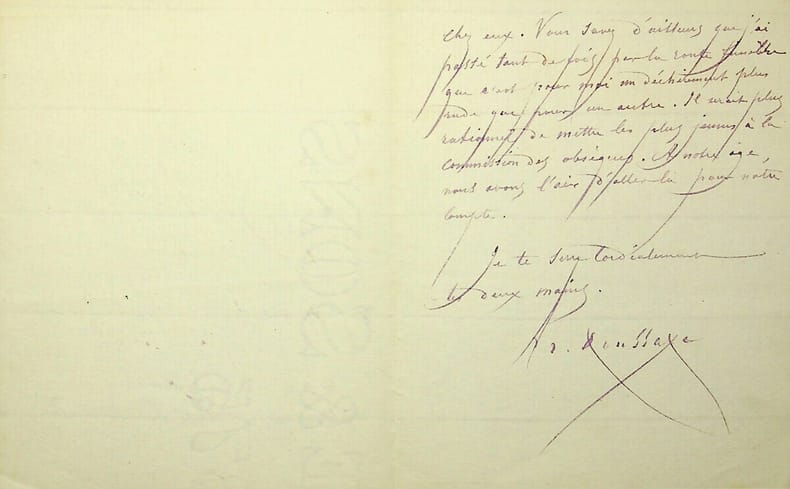 chez eux. Vous savez d'ailleurs que j'ai
passé tant de fois par la route funèbre
que c'est pour moi un déchirement plus
rude que pour un autre. Il serait plus
rationnel de mettre les plus jeunes à la
commission des obsèques. A notre âge,
nous avons l'air d'aller là pour notre
compte.
Je te serre cordialement
les deux mains.